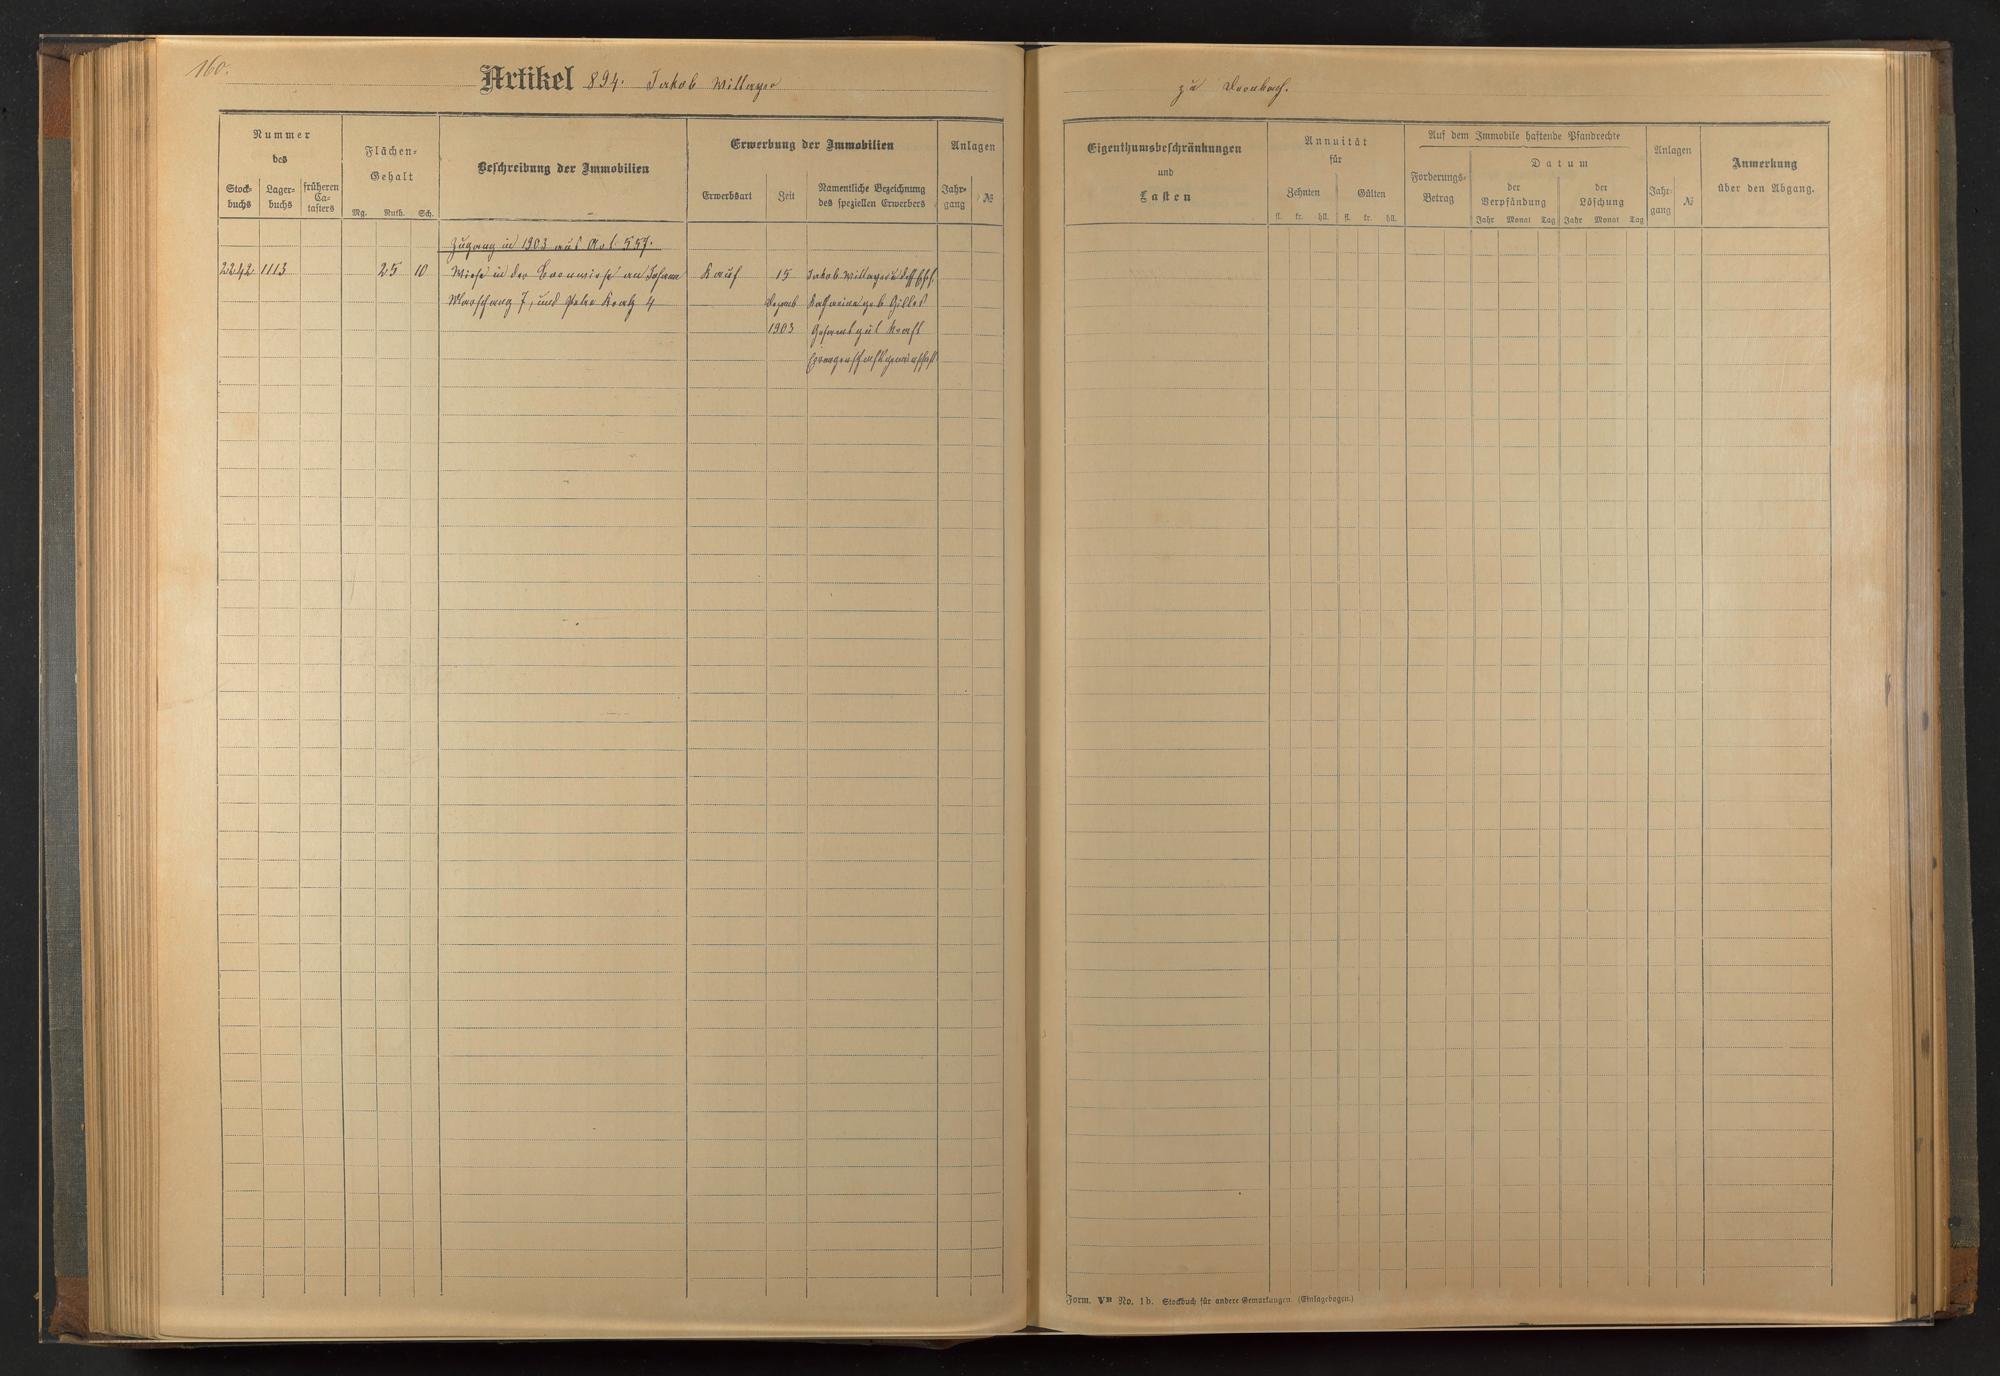 160.
Artikel 894. Jakob Willayer
zu Dernbach.
Nummer
des
Stock-
buchs
Lager-
buchs
früheren
Ca-
tasters
Flächen-
Gehalt
Mg. Ruth. Sch.
Beschreibung der Immobilien
Erwerbung der Immobilien
Erwerbsart
Zeit
Namentliche Bezeichnung
des speziellen Erwerbers
Anlagen
Jahr-
gang
№
Zugang in 1903 aus Art. 557.
2242 1113 25 10 Wiese in der an Johann Kauf 15 Jakob Willayer u. dess. Ehefr.
7, und Peter Kratz 4 Dezemb Katharina geb Gilles
1903 Gesamtgut kraft
Errungenschaftsgemeinschaft
Eigenthumsbeschränkungen
und
Lasten
Annuität
für
Zehnten
Gülten
fl. kr. hll. fl. kr. hll.
Auf dem Immobile haftende Pfandrechte
Forderungs-
Betrag
Datum
der
Verpfändung
der
Löschung
Jahr Monat Tag Jahr Monat Tag
Anlagen
Jahr-
gang
№
Anmerkung
über den Abgang.
Form. VB No. 1b. Stockbuch für andere Gemarkungen. (Einlagebogen.)